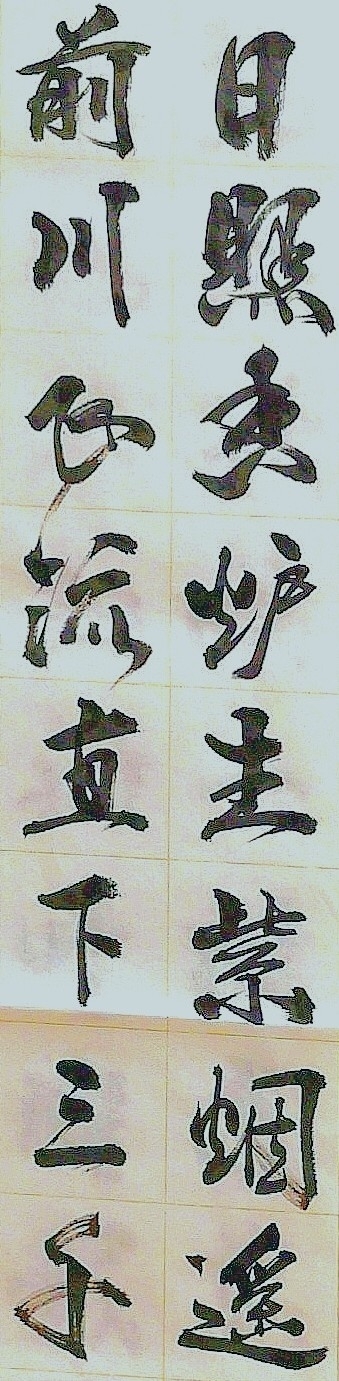 日照香炉生紫烟遥
前川飞流直下三千